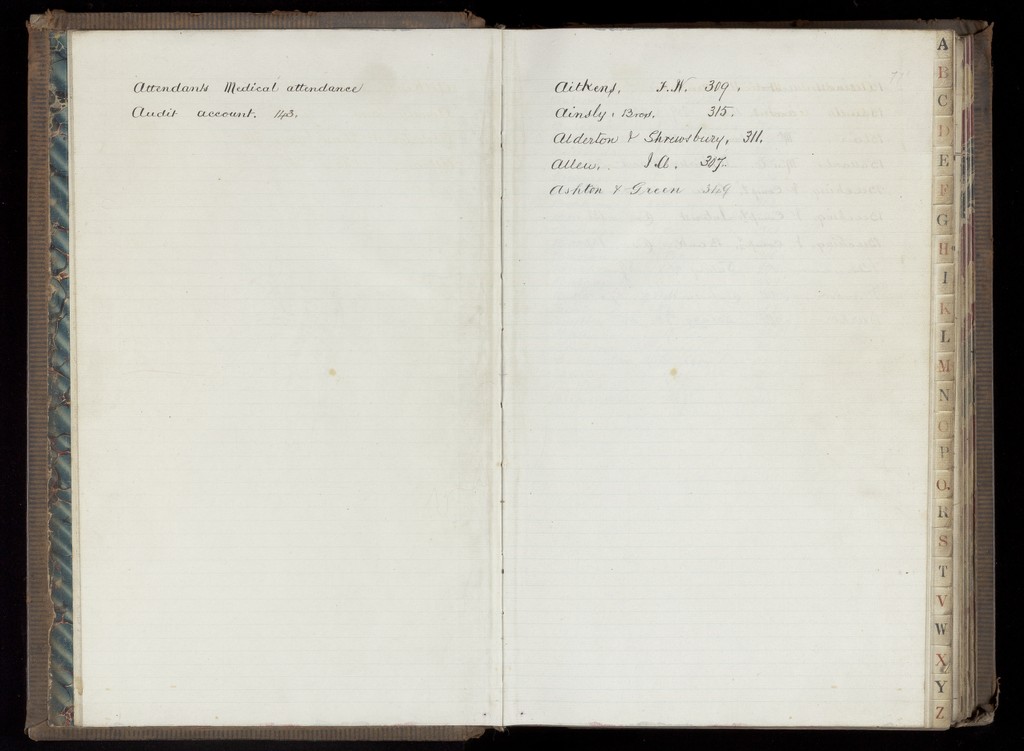 Attendants Medical attendance
Audit account. 143.
Aitkens, F. W. 309.
Ainsly, Bros. 315.
Alderton & Shrewsbury, 311.
Allen, J. A. 307.
Ashton & Green 349
A
B
C
D
E
F
G
H
I
K
L
M
N
O
P
Q
R
S
T
V
W
X
Y
Z